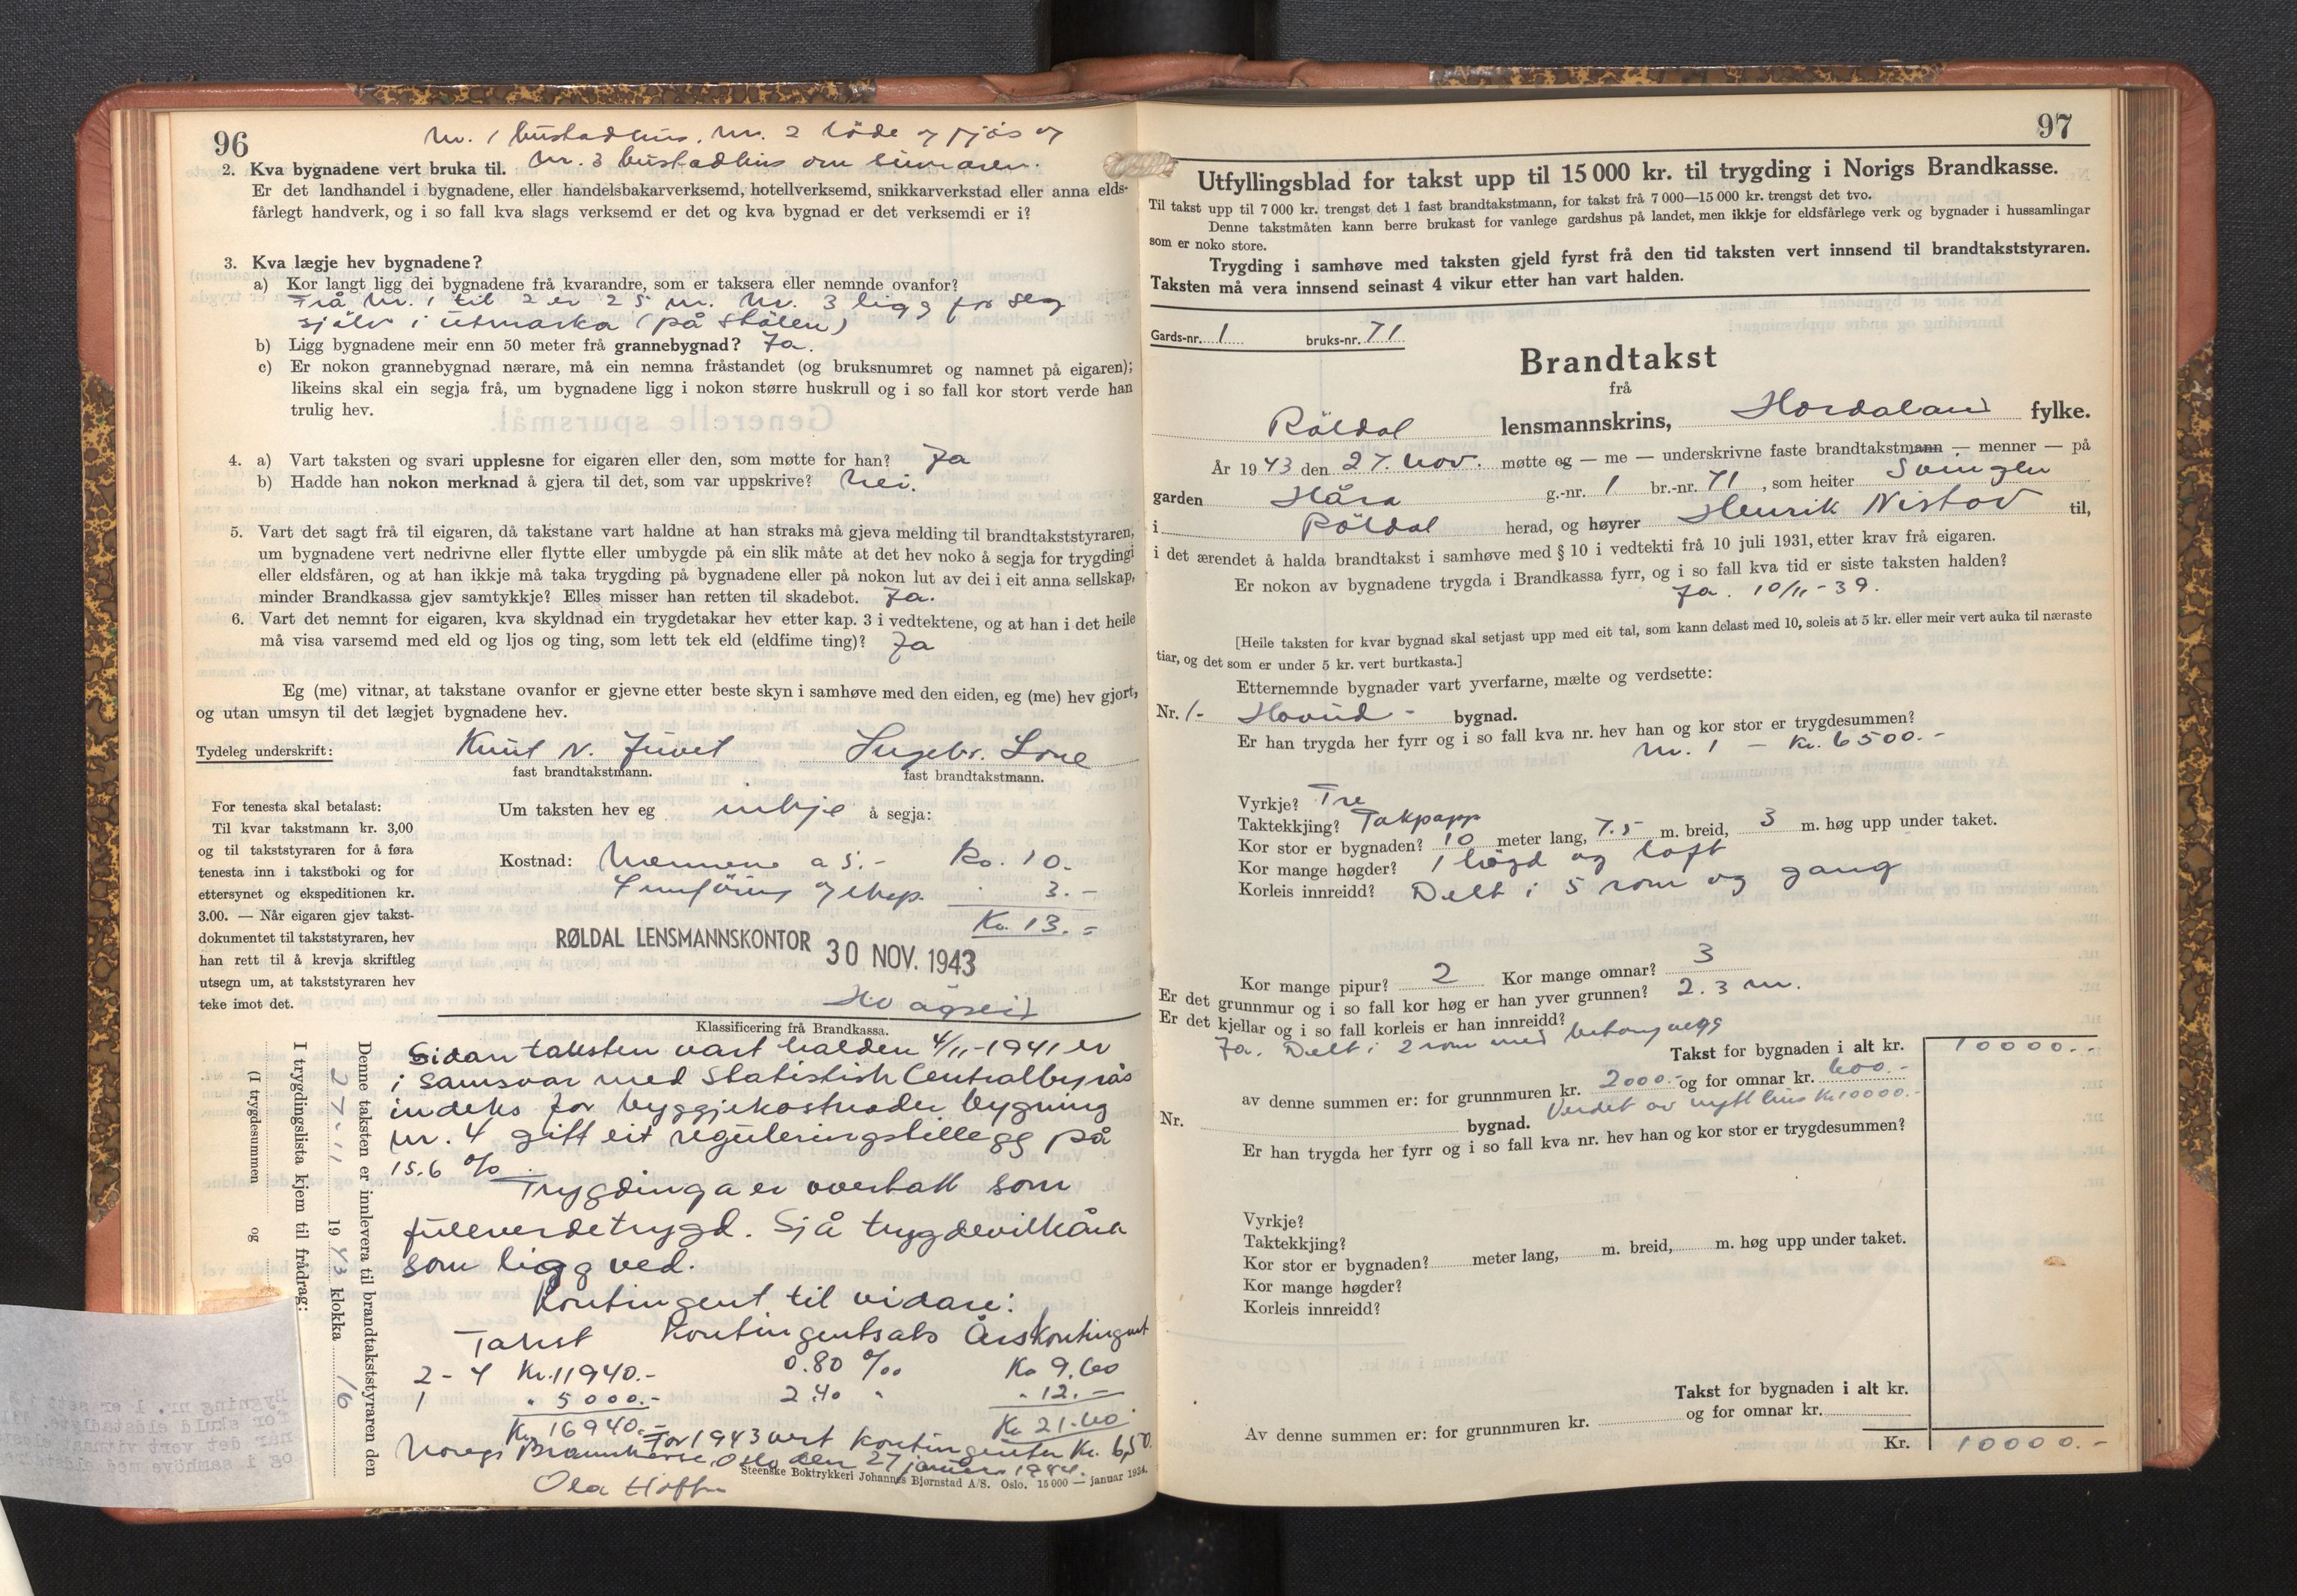 96
Nr. 1 bustadhus. Nr. 2 löde og fjös og
2. Kva bygnadene vert bruka til. Nr. 3 bustadhus om sumaren.
Er det landhandel i bygnadene, eller handelsbakarverksemd, hotellverksemd, snikkarverkstad eller anna elds-
fårlegt handverk, og i so fall kva slags verksemd er det og kva bygnad er det verksemdi er i?
3. Kva lægje hev bygnadene?
a) Kor langt ligg dei bygnadene frå kvarandre, som er taksera eller nemnde ovanfor?
Frå Nr. 1 til 2 er 25 m. Nr. 3 ligg for seg
sjölv i utmarka (på stölen)
b) Ligg bygnadene meir enn 50 meter frå grannebygnad? Ja.
c) Er nokon grannebygnad nærare, må ein nemna fråstandet (og bruksnumret og namnet på eigaren);
likeins skal ein segja frå, um bygnadene ligg i nokon større huskrull og i so fall kor stort verde han
trulig hev.
4. a) Vart taksten og svari upplesne for eigaren eller den, som møtte for han? Ja
b) Hadde han nokon merknad å gjera til det, som var uppskrive? Nei.
5. Vart det sagt frå til eigaren, då takstane vart haldne at han straks må gjeva melding til brandtakststyraren,
um bygnadene vert nedrivne eller flytte eller umbygde på ein slik måte at det hev noko å segja for trygdingi
eller eldsfåren, og at han ikkje må taka trygding på bygnadene eller på nokon lut av dei i eit anna sellskap,
minder Brandkassa gjev samtykkje? Elles misser han retten til skadebot. Ja.
6. Vart det nemnt for eigaren, kva skyldnad ein trygdetakar hev etter kap. 3 i vedtektene, og at han i det heile
må visa varsemd med eld og ljos og ting, som lett tek eld (eldfime ting)? Ja
Eg (me) vitnar, at takstane ovanfor er gjevne etter beste skyn i samhøve med den eiden, eg (me) hev gjort,
og utan umsyn til det lægjet bygnadene hev.
Tydeleg underskrift: Knut N. Juvet Ingebr. Lone
fast brandtakstmann. fast brandtakstmann.
For tenesta skal betalast:
Til kvar takstmann kr. 3,00
og til takststyraren for å føra
tenesta inn i takstboki og for
ettersynet og ekspeditionen kr.
3.00. — Når eigaren gjev takst-
dokumentet til takststyraren, hev
han rett til å krevja skriftleg
utsegn um, at takststyraren hev
teke imot det.
Um taksten hev eg inkje å segja:
Kostnad: Mennene a 5.- Kr. 10.-
Innföring og eksp. 3.-
Kr. 13.=
RØLDAL LENSMANNSKONTOR 30 NOV. 1943
Klassificering frå Brandkassa.
Sidan taksten vart halden 4/11-1941 er
i samsvar med Statistisk Centralbyrås
indeks for byggjekostnader bygning
nr. 4 gitt eit reguleringstillegg på
15.6 %. Trygdinga er overtatt som
fullverdetrygd. Sjå trygdevilkåra
som ligg ved.
Kontingent til vidare:
Takst Kontingentsats Årskontingent
2-4 Kr. 11940.- 0.80 ‰ Kr 9.60
1 " 5000.- 2.40 " " 12.-
Kr. 16940.- Kr 21.60
For 1943 vert kontingenten Kr. 6,50.
Noregs Brannkasse, Oslo den 27 januar 1944.
Ola
Steenske Boktrykkeri Johannes Bjørnstad A/S. Oslo. 15 000 — januar 1934.
Denne taksten er innlevera til brandtakststyraren den
27-11 1943 klokka 16
I trygdingslista kjem til frådrag:
(I trygdesummen og
97
Utfyllingsblad for takst upp til 15 000 kr. til trygding i Norigs Brandkasse.
Til takst upp til 7 000 kr. trengst det 1 fast brandtakstmann, for takst frå 7 000—15 000 kr. trengst det tvo.
Denne takstmåten kann berre brukast for vanlege gardshus på landet, men ikkje for eldsfårlege verk og bygnader i hussamlingar
som er noko store.
Trygding i samhøve med taksten gjeld fyrst frå den tid taksten vert innsend til brandtakststyraren.
Taksten må vera innsend seinast 4 vikur etter han vart halden.
Gards-nr. 1 bruks-nr. 71
Brandtakst
frå
Röldal lensmannskrins, Hordaland fylke.
År 1943 den 27. nov. møtte eg — me — underskrivne faste brandtakstmann — menner — på
garden Håra g.-nr. 1 br.-nr. 71, som heiter Svingen
i Röldal herad, og høyrer Henrik Nistov til,
i det ærendet å halda brandtakst i samhøve med § 10 i vedtekti frå 10 juli 1931, etter krav frå eigaren.
Er nokon av bygnadene trygda i Brandkassa fyrr, og i so fall kva tid er siste taksten halden?
Ja. 10/11-39.
[Heile taksten for kvar bygnad skal setjast upp med eit tal, som kann delast med 10, soleis at 5 kr. eller meir vert auka til næraste
tiar, og det som er under 5 kr. vert burtkasta.]
Etternemnde bygnader vart yverfarne, mælte og verdsette:
Nr. 1- Hovud- bygnad.
Er han trygda her fyrr og i so fall kva nr. hev han og kor stor er trygdesummen?
Nr. 1 - Kr. 6500.-
Vyrkje? Tre
Taktekkjing? Takpapp
Kor stor er bygnaden? 10 meter lang, 7.5 m. breid, 3 m. høg upp under taket.
Kor mange høgder? 1 högd og loft
Korleis innreidd? Delt i 5 rom og gang
Kor mange pipur? 2 Kor mange omnar? 3
Er det grunnmur og i so fall kor høg er han yver grunnen? 2.3 m.
Er det kjellar og i so fall korleis er han innreidd?
Ja. Delt i 2 rom med betongvegg
Takst for bygnaden i alt kr. 10000.-
av denne summen er: for grunnmuren kr. 2000.- og for omnar kr. 600.-
Verdet av nytt hus Kr 10000.-
Nr. bygnad.
Er han trygda her fyrr og i so fall kva nr. hev han og kor stor er trygdesummen?
Vyrkje?
Taktekkjing?
Kor stor er bygnaden? meter lang, m. breid, m. høg upp under taket.
Kor mange høgder?
Korleis innreidd?
Takst for bygnaden i alt kr.
Av denne summen er: for grunnmuren kr. og for omnar kr.
Kr. 10000.-